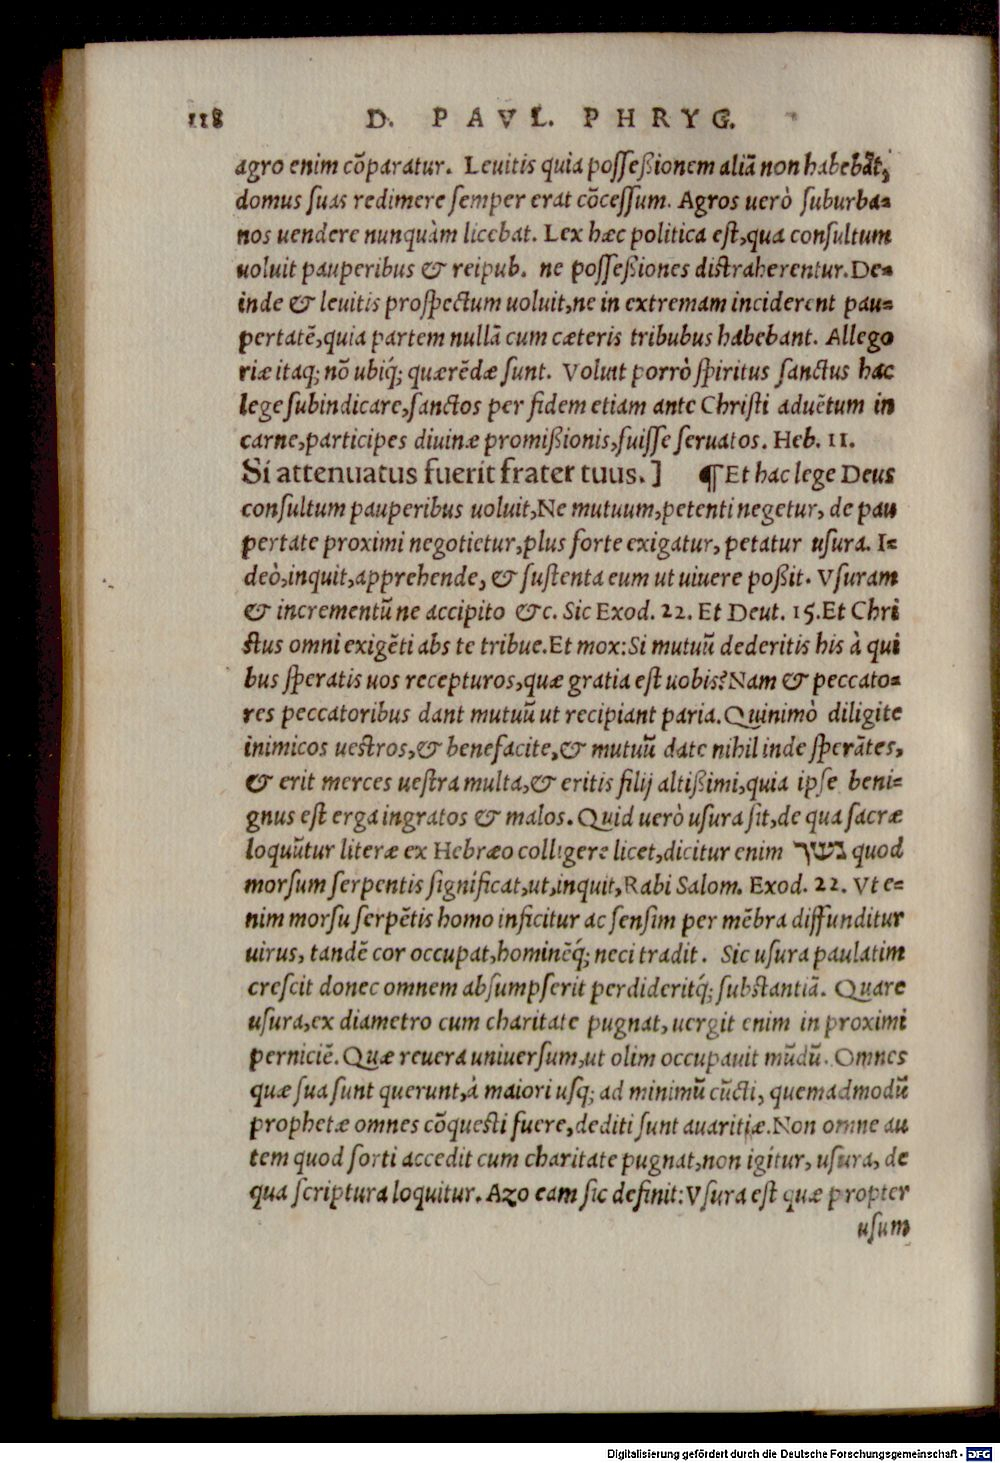 118 D. PAVL. PHRYG.
agro enim cõparatur. Leuitis quia possessionem aliã non habebãt,
domus suas redimere semper erat cõcessum. Agros uerò suburba-
nos uendere nunquàm licebat. Lex hæc politica est, qua consultum
uoluit pauperibus & reipub. ne possessiones distraherentur. De-
inde & leuitis prospectum uoluit, ne in extremam inciderent pau-
pertatẽ, quia partem nullã cum cæteris tribubus habebant. Allego
riæ itaq; nõ ubiq́; quærẽdæ sunt. Voluit porrò spiritus sanctus hac
lege subindicare, sanctos per fidem etiam ante Christi aduẽtum in
carne, participes diuinæ promissionis, fuisse seruatos. Heb. 11.
Si attenuatus fuerit frater tuus. ] ¶ Et hac lege Deus
consultum pauperibus uoluit, Ne mutuum, petenti negetur, de pau
pertate proximi negotietur, plus forte exigatur, petatur usura. I-
deò, inquit, apprehende, & sustenta eum ut uiuere possit. Vsuram
& incrementũ ne accipito &c. Sic Exod. 22. Et Deut. 15. Et Chri
stus omni exigẽti abs te tribue. Et mox: Si mutuũ dederitis his à qui
bus speratis uos recepturos, quæ gratia est uobis? Nam & peccato-
res peccatoribus dant mutuũ ut recipiant paria. Quinimò diligite
inimicos uestros, & benefacite, & mutuũ date nihil inde sperãtes,
& erit merces uestra multa, & eritis filij altissimi, quia ipse beni-
gnus est erga ingratos & malos. Quid uerò usura sit, de qua sacræ
loquũtur literæ ex Hebræo colligere licet, dicitur enim נשך quod
morsum serpentis significat, ut, inquit, Rabi Salom. Exod. 22. Vt e-
nim morsu serpẽtis homo inficitur ac sensim per mẽbra diffunditur
uirus, tandẽ cor occupat, hominẽq́; neci tradit. Sic usura paulatim
crescit donec omnem absumpserit perdideritq́; substantiã. Quare
usura, ex diametro cum charitate pugnat, uergit enim in proximi
perniciẽ. Quæ reuera uniuersum, ut olim occupauit mũdũ. Omnes
quæ sua sunt querunt, à maiori usq; ad minimũ cũcti, quemadmodũ
prophetæ omnes cõquesti fuere, dediti sunt auaritiæ. Non omne au
tem quod sorti accedit cum charitate pugnat, non igitur, usura, de
qua scriptura loquitur. Azo eam sic definit: Vsura est quæ propter
usum
Digitalisierung gefördert durch die Deutsche Forschungsgemeinschaft - DFG